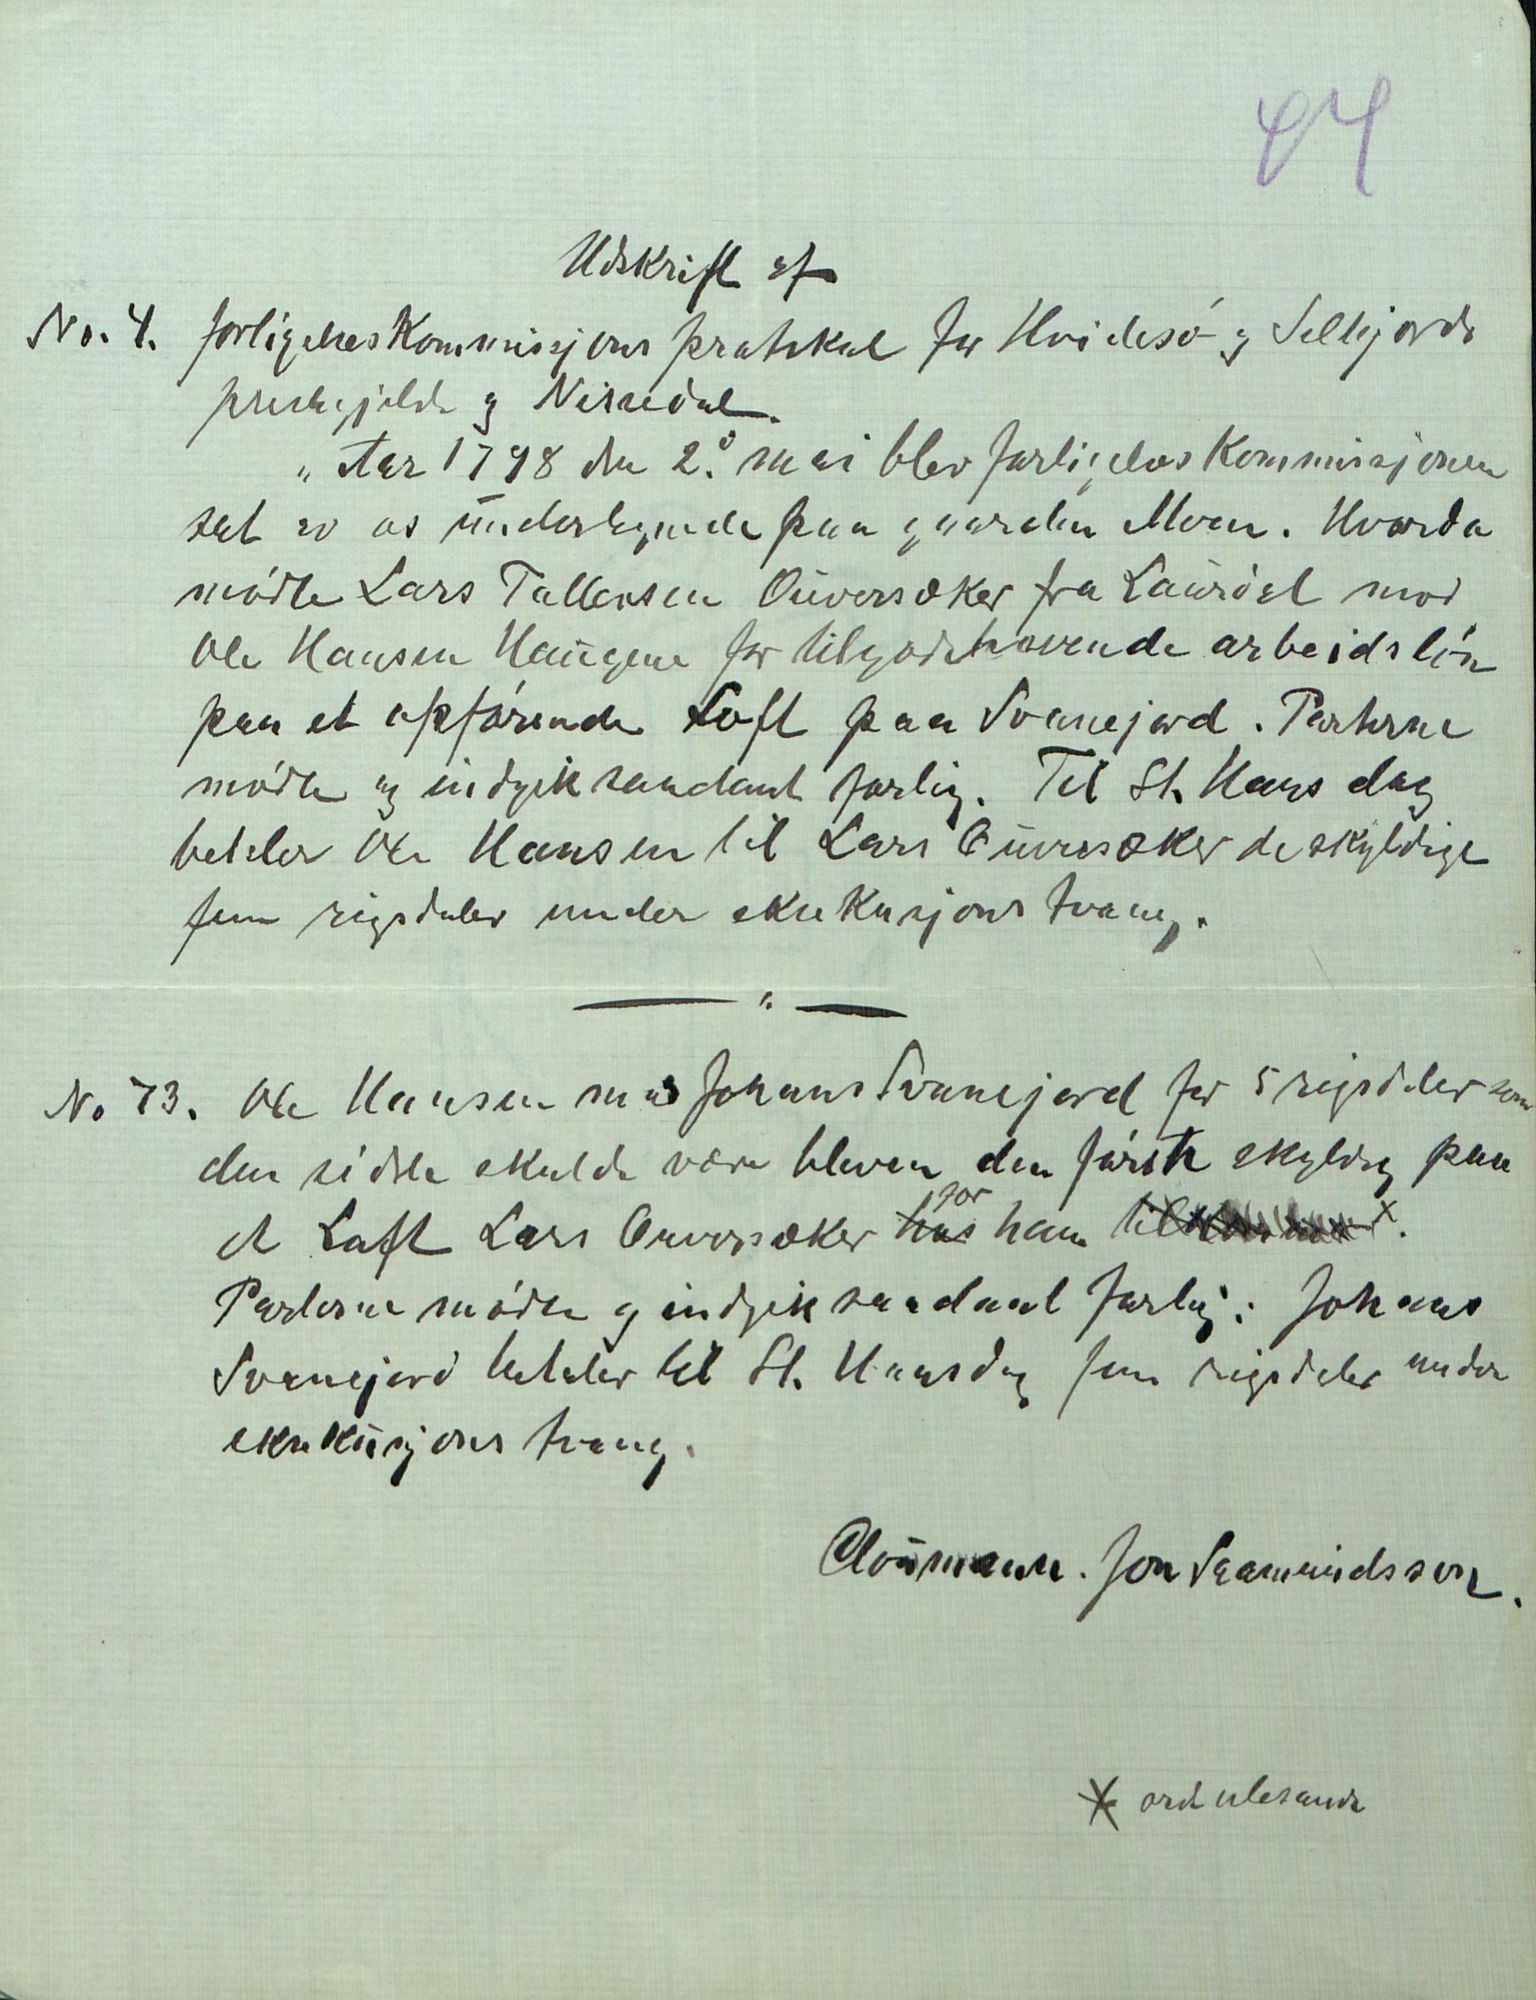 44
Udskrift af
No. 4. forligelses Kommissjons protokol for Hvidesö og Sellejords
prestegjelde og Nissedal.
"Aar 1798 den 2. mai blev forligelses Kommissjonen
sat av os undertegnede paa gaarden Moen. Hvorda
mödte Lars Tallevsen Ouversæker fra Laurdal mod
Ole Hansen Haugene for tilgodehavende arbeidslön
paa et opförende Loft paa Svanejord. Parterne
mödte og indgik saadant forlig. Til St. Hans dag
betaler Ole Hansen til Lars Ouversæker de skyldige
fem rigsdaler under ekseKusjons tvang.
No 73. Ole Hansen mod Johans Svanejord for 5 rigsdaler som
den sidste skulde være bleven den förste skyldig paa
et Loft Lars Ouversæker hus for ham til x.
Parterne mödte og indgik saadant forlig: Johans
Svanejord betaler til St. Hansdag fem rigsdaler under
eksekusjons tvang.
Cloumann. Jon Saamundsson.
x ord ulesande